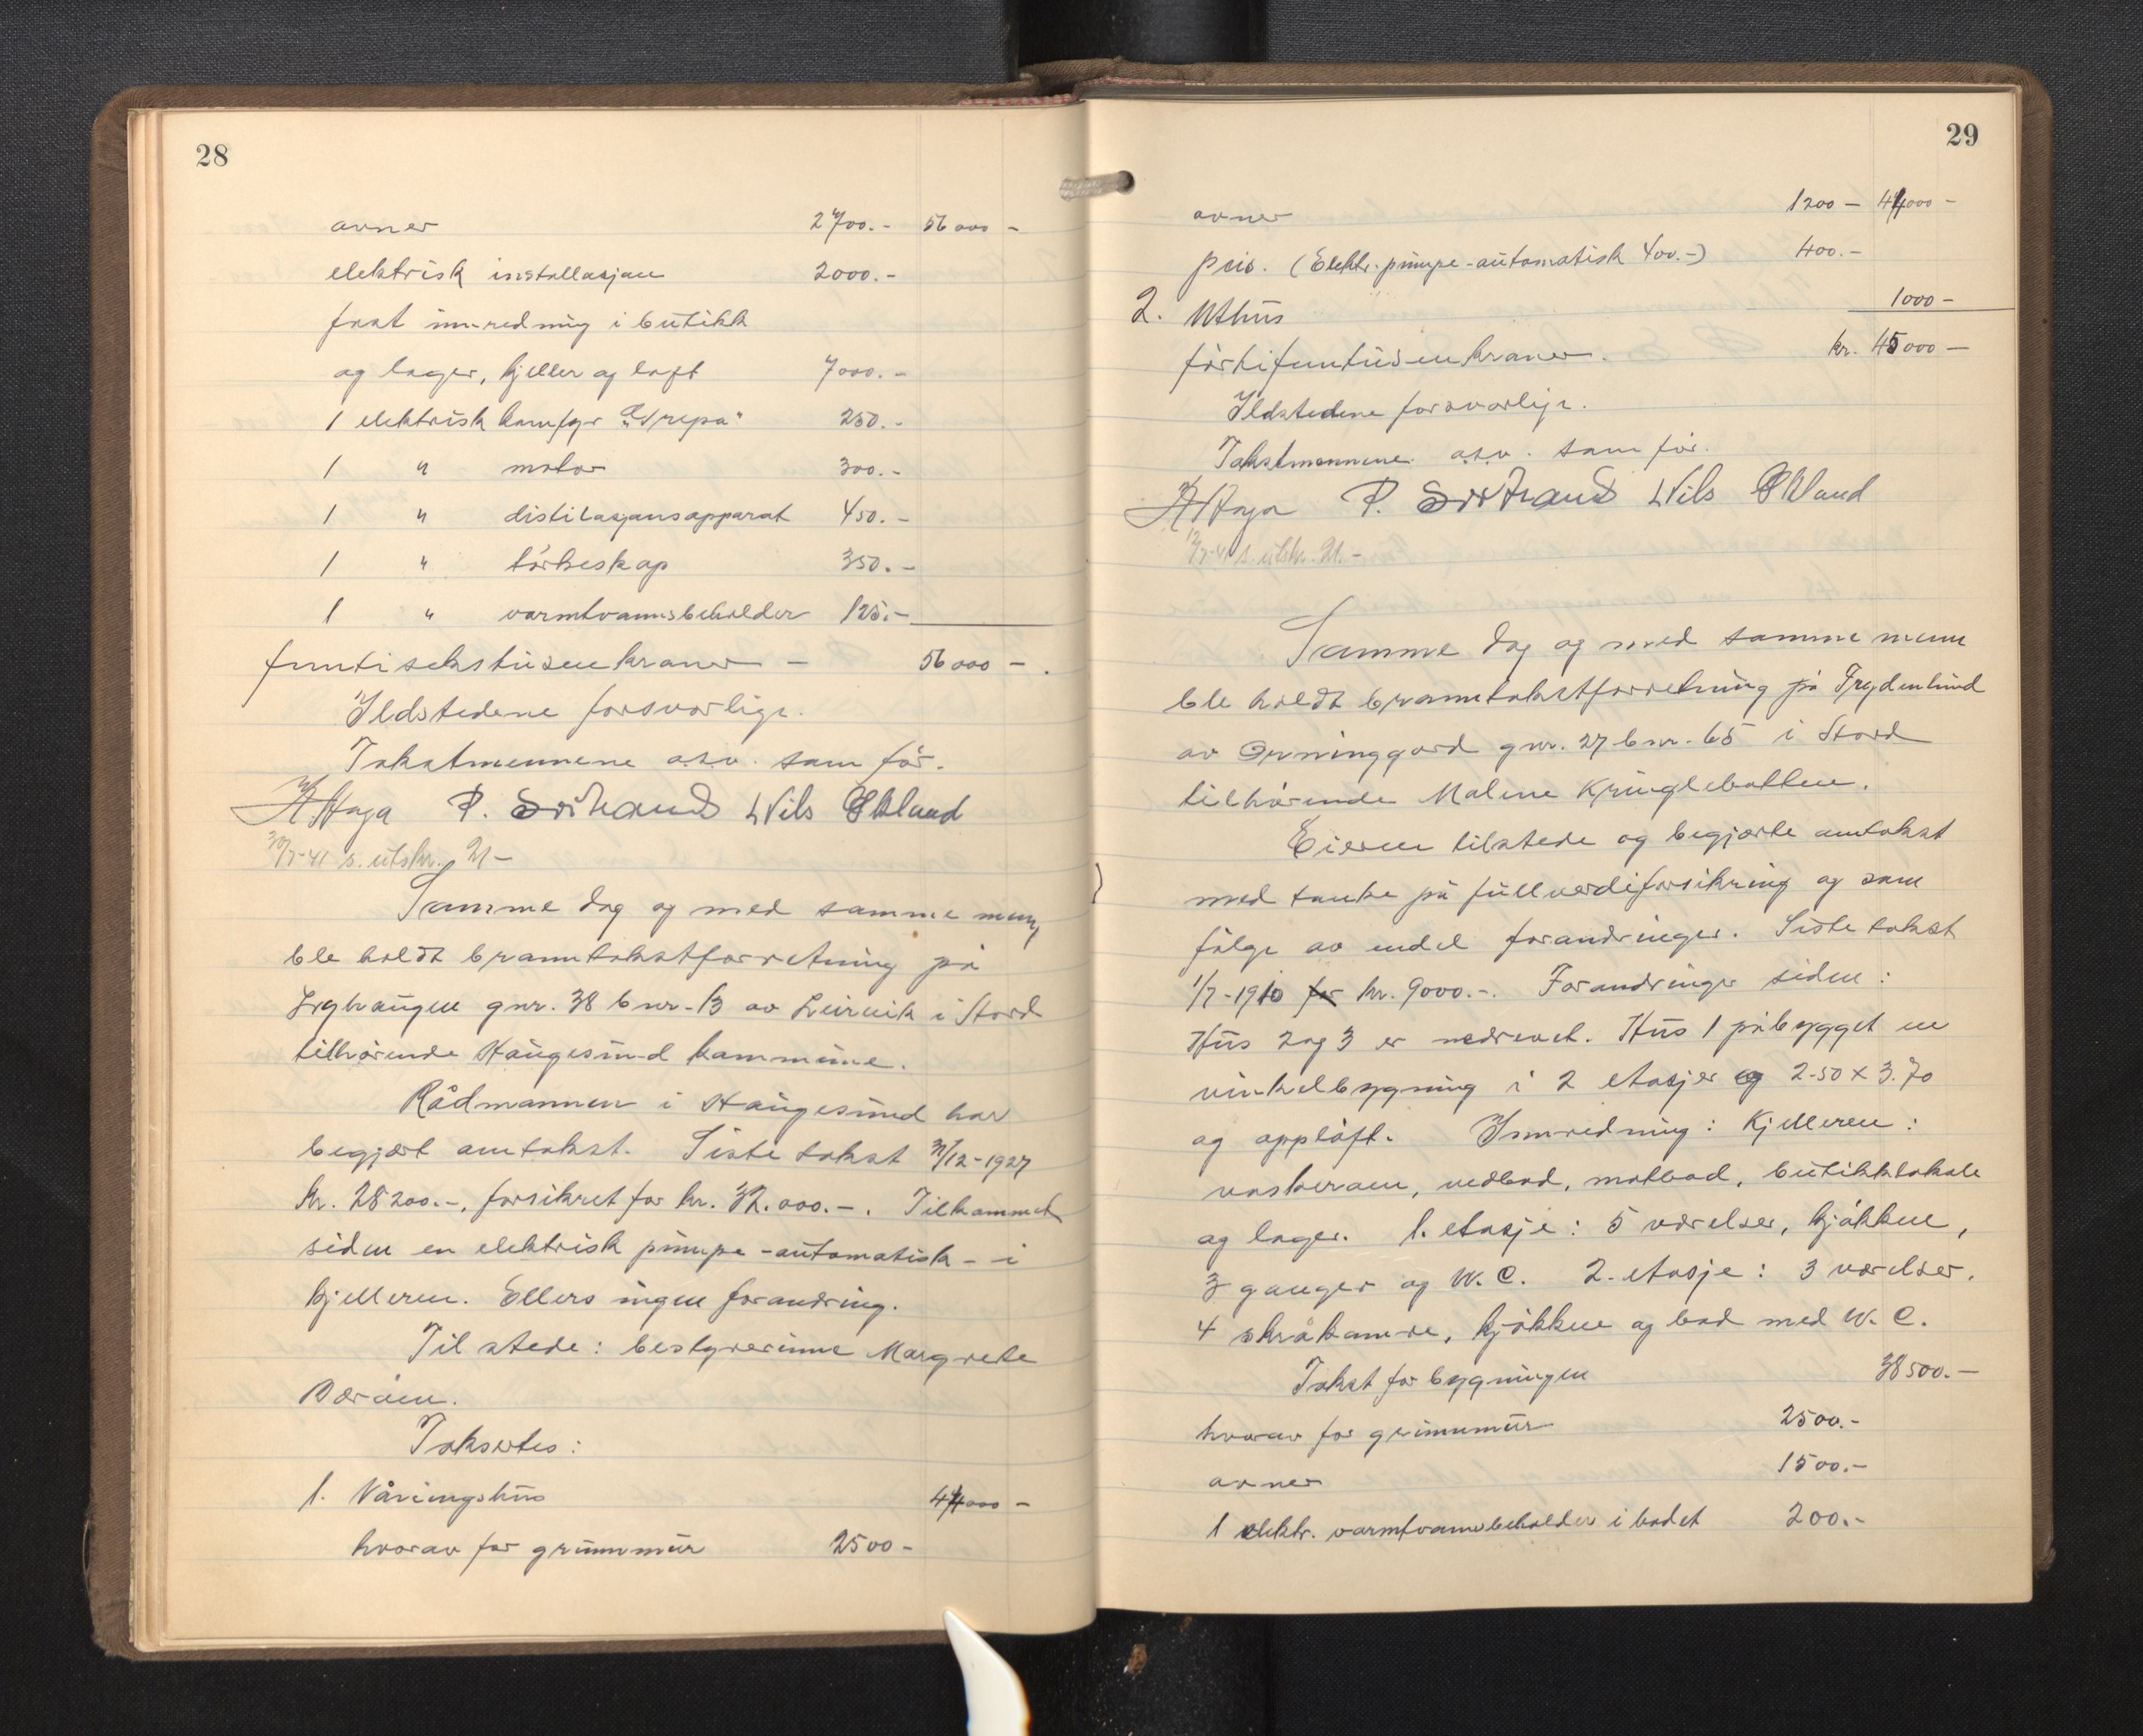 28
ovner 2700.- 56000 -
elektrisk installasjon 2000.-
fast innredning i butikk
og lager, kjeller og loft 7000.-
1 elektrisk komfyr "Grepa" 250.-
1 " motor 300.-
1 " distilasjonsapparat 450.-
1 " törkeskap 350.-
1 " varmtvannsbeholder 125.-
femtisekstusenkroner - 56000 - .
Ildstedene forsvarlige.
Takstmennene o.s.v. som för.
A Haga P. Nils Økland
30/7-41 s. utskr. 21 -
Samme dag og med samme menn
ble holdt branntakstforretning på
gnr. 38 bnr. 13 av Leirvik i Stord
tilhörende Haugesund kommune.
Rådmannen i Haugesund har
begjært omtakst. Siste takst 31/12-1927
kr. 28200.-, forsikret for kr. 32.000.-. Tilkommet
siden en elektrisk pumpe - automatisk - i
kjelleren. Ellers ingen forandring.
Til stede: bestyrerinne Margrete
Taksertes:
1. Våningshus 44000 -
hvorav for grunnmur 2500 -
29
ovner 1200 - 44000 -
pris. (Elektr. pumpe - automatisk 400.-) 400.-
2. Uthus 1000 -
förtifemtusenkroner. kr. 45000 -
Ildstedene forsvarlige.
Takstmennene o.s.v. som för.
A Haga P. Nils Økland
12/7-41 s. utskr. 21.-
Samme dag og med samme menn
ble holdt branntakstforretning på Frydenlund
av Orninggård gnr. 27 bnr. 65 i Stord
tilhörende Malene Kringlebotten.
Eieren tilstede og begjærte omtakst
med tanke på fullverdiforsikring og som
fölge av endel forandringer. Siste takst
1/7-1910 for kr. 9000.-. Forandringer siden:
Hus 2 og 3 er nedrevet. Hus 1 påbygget en
vinkelbygning i 2 etasjer og 2.50 x 3.70
og opplöft. Innredning: Kjelleren:
vaskerom, vedbod, matbod, butikklokale
og lager. 1. etasje: 5 værelser, kjökken,
3 ganger og W.C. 2. etasje: 3 værelser,
4 skråkamre, kjökken og bad med W.C.
Takst for bygningen 38500.-
hvorav for grunnmur 2500.-
ovner 1500.-
1 elektr. varmtvannsbeholder i badet 200.-